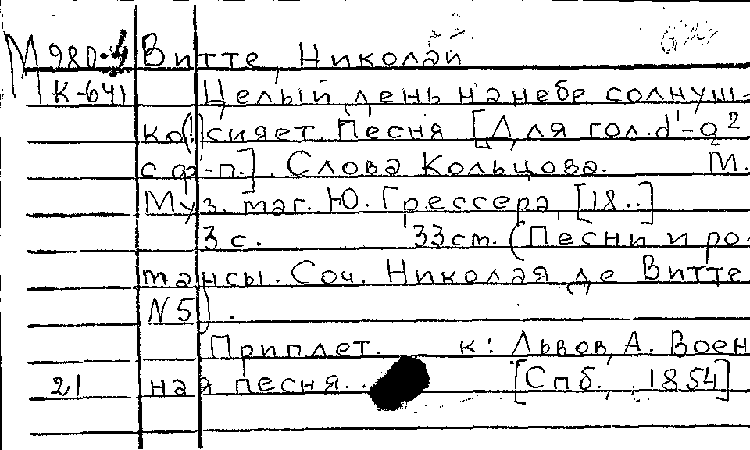 М 980-4 Витте, Николай
К-641 Целый день на небе солнуш-
ко(!) сияет. Песня [Для гол. d'-g²
с ф-п.]. Слова Кольцова. М.
Муз. маг. Ю. Грессера, [18..]
3 с. 33 см. (Песни и ро-
мансы. Соч. Николая де Витте
N 5).
Приплет. к: Львов, А. Воен-
21 ная песня. [Спб., 1854]